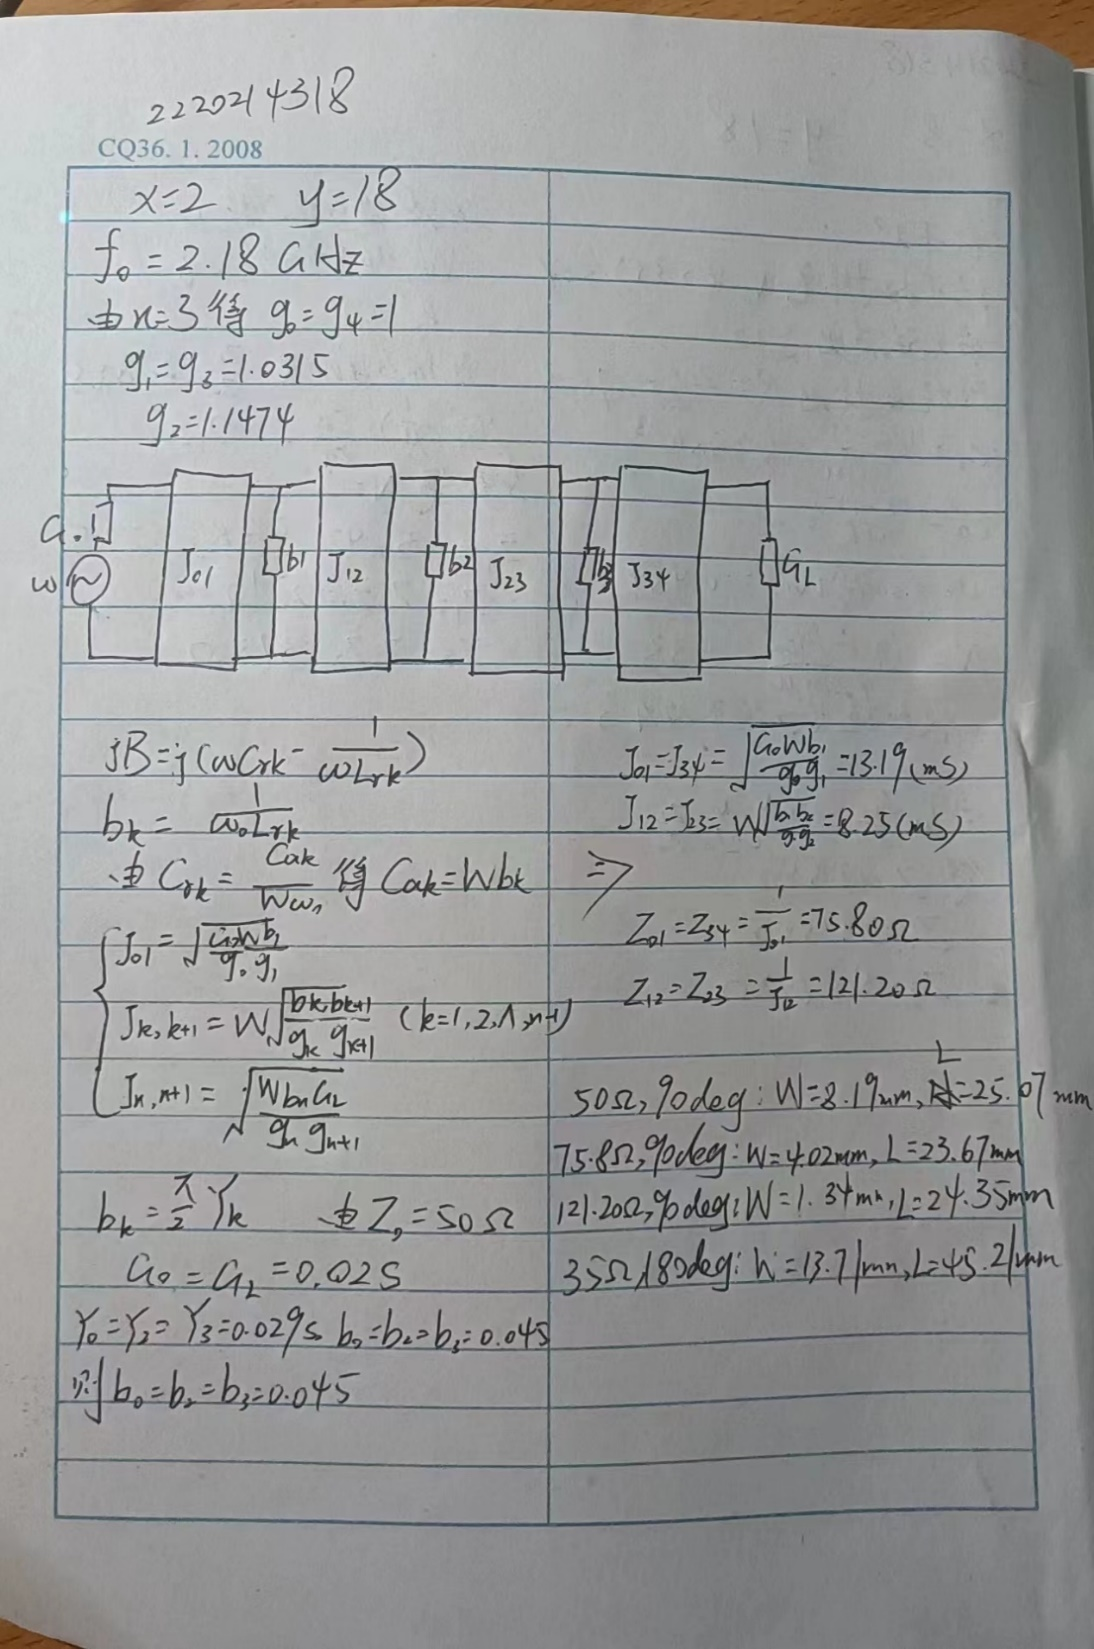 2220214318
CQ36. 1. 2008
x=2 y=18
f₀ = 2.18 GHz
由n=3得 g₀=g₄=1
g₁=g₃=1.0315
g₂=1.1474
G.
w
J₀₁
b1
J₁₂
b2
J₂₃
b3
J₃₄
G_L
jB=j(ωCrk - 1/(ωLrk))
bk = 1/(ω₀Lrk)
由 Crk = Cak/(Wω₁) 得 Cak=Wbk
J₀₁ = √(G₀Wb₁/(g₀g₁))
Jk,k+1 = W√(bk bk+1/(gk gk+1)) (k=1,2,Λ,n-1)
Jn,n+1 = √(WbnGL/(gn gn+1))
bk = π/2 Yk 由Z₀=50Ω
G₀=GL=0.02S
Y₀=Y₂=Y₃=0.029s b₀=b₂=b₃=0.045
则b₀=b₂=b₃=0.045
J₀₁=J₃₄=√(G₀Wb₁/(g₀g₁))=13.19(mS)
J₁₂=J₂₃=W√(b₁b₂/(g₁g₂))=8.25(mS)
⇒
Z₀₁=Z₃₄=1/J₀₁=75.80Ω
Z₁₂=Z₂₃=1/J₁₂=121.20Ω
50Ω,90deg: W=8.19mm, L=25.07mm
75.8Ω,90deg: W=4.02mm, L=23.67mm
121.20Ω,90deg: W=1.34mm, L=24.35mm
35Ω,180deg: W=13.71mm, L=45.21mm